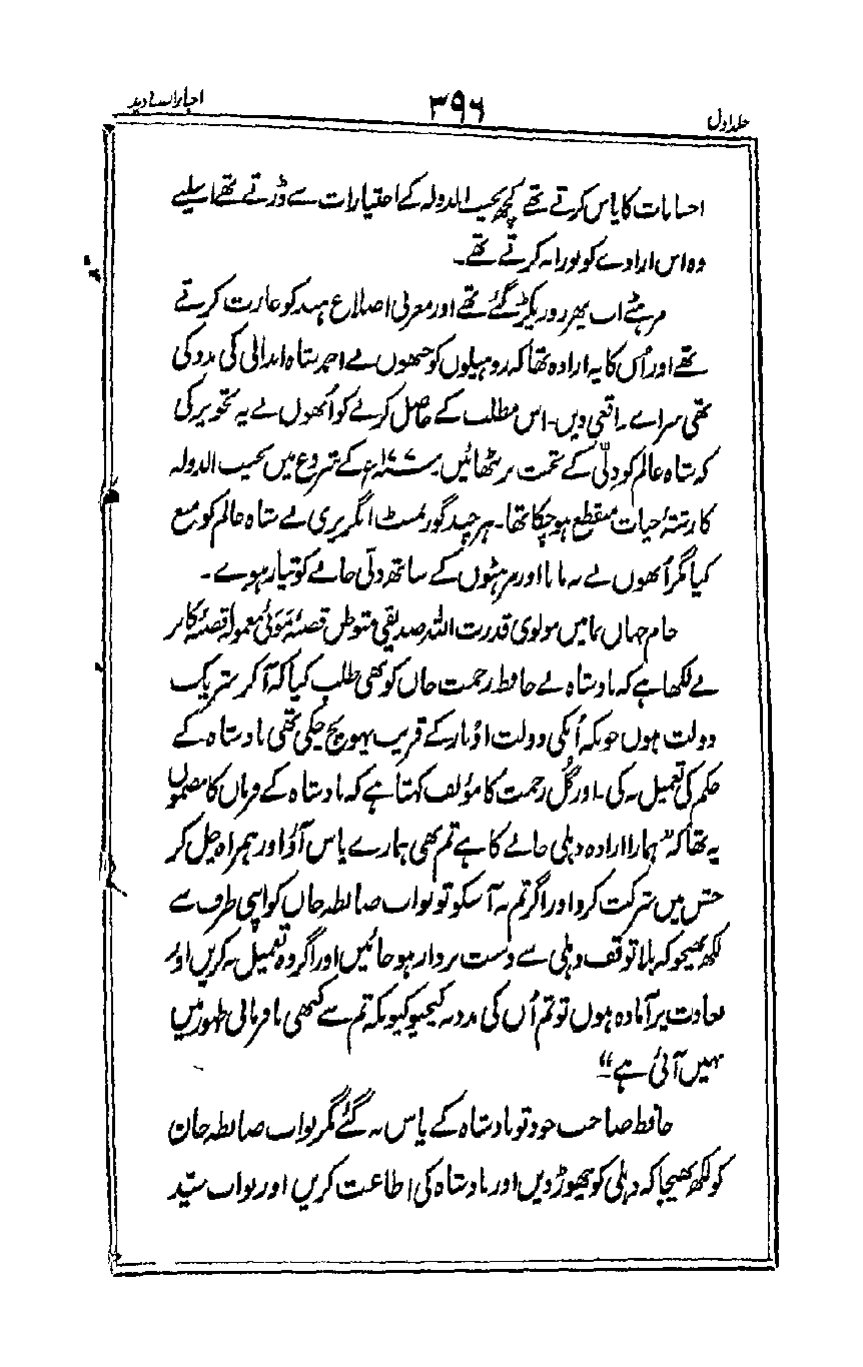 جلد اول ۳۹۶ اخبار الصنادید
احسانات کا پاس کرتے تھے کچھ نجیب الدولہ کے اختیارات سے ڈرتے تھے اسلیے
وہ اس ارادے کو پورا نہ کرتے تھے۔
مرہٹے اب پھر زور پکڑ گئے تھے اور مغربی اضلاع ہند کو غارت کرتے
تھے اور اُن کا یہ ارادہ تھا کہ روہیلوں کو جنھوں نے احمد شاہ ابدالی کی مدد کی
تھی سزاے واقعی دیں۔ اس مطلب کے حاصل کرنے کو اُنھوں نے یہ تجویز کی
کہ شاہ عالم کو دلّی کے تخت پر بٹھائیں۔ ۱۷۷۰ء کے شروع میں نجیب الدولہ
کا رشتۂ حیات منقطع ہو چکا تھا۔ ہر چند گورنمنٹ انگریزی نے شاہ عالم کو منع
کیا مگر اُنھوں نے نہ مانا اور مرہٹوں کے ساتھ دلّی جانے کو تیار ہوے۔
جام جہاں نما میں مولوی قدرت اللہ صدیقی متوطن قصبۂ مَوئی معمولہ قصبۂ کابر
نے لکھا ہے کہ بادشاہ نے حافظ رحمت خاں کو بھی طلب کیا کہ آکر شریک
دولت ہوں چونکہ اُنکی دولت ادبار کے قریب پہونچ چکی تھی بادشاہ کے
حکم کی تعمیل نہ کی۔ اور گُل رحمت کا مؤلف کہتا ہے کہ بادشاہ کے فرماں کا مضموں
یہ تھا کہ "ہمارا ارادہ دہلی جانے کا ہے تم بھی ہمارے پاس آؤ اور ہمراہ چل کر
جشن میں شرکت کرو اور اگر تم نہ آسکو تو نواب ضابطہ خاں کو اپنی طرف سے
لکھ بھیجو کہ بلا توقف دہلی سے دست بردار ہو جائیں اور اگر وہ تعمیل نہ کریں اور
بغاوت پر آمادہ ہوں تو تم اُن کی مدد نہ کیجیو کیونکہ تم سے کبھی نافرمانی ظہور میں
نہیں آئی ہے"
حافظ صاحب خود تو بادشاہ کے پاس نہ گئے مگر نواب ضابطہ خان
کو لکھ بھیجا کہ دہلی کو چھوڑ دیں اور بادشاہ کی اطاعت کریں اور نواب سیّد